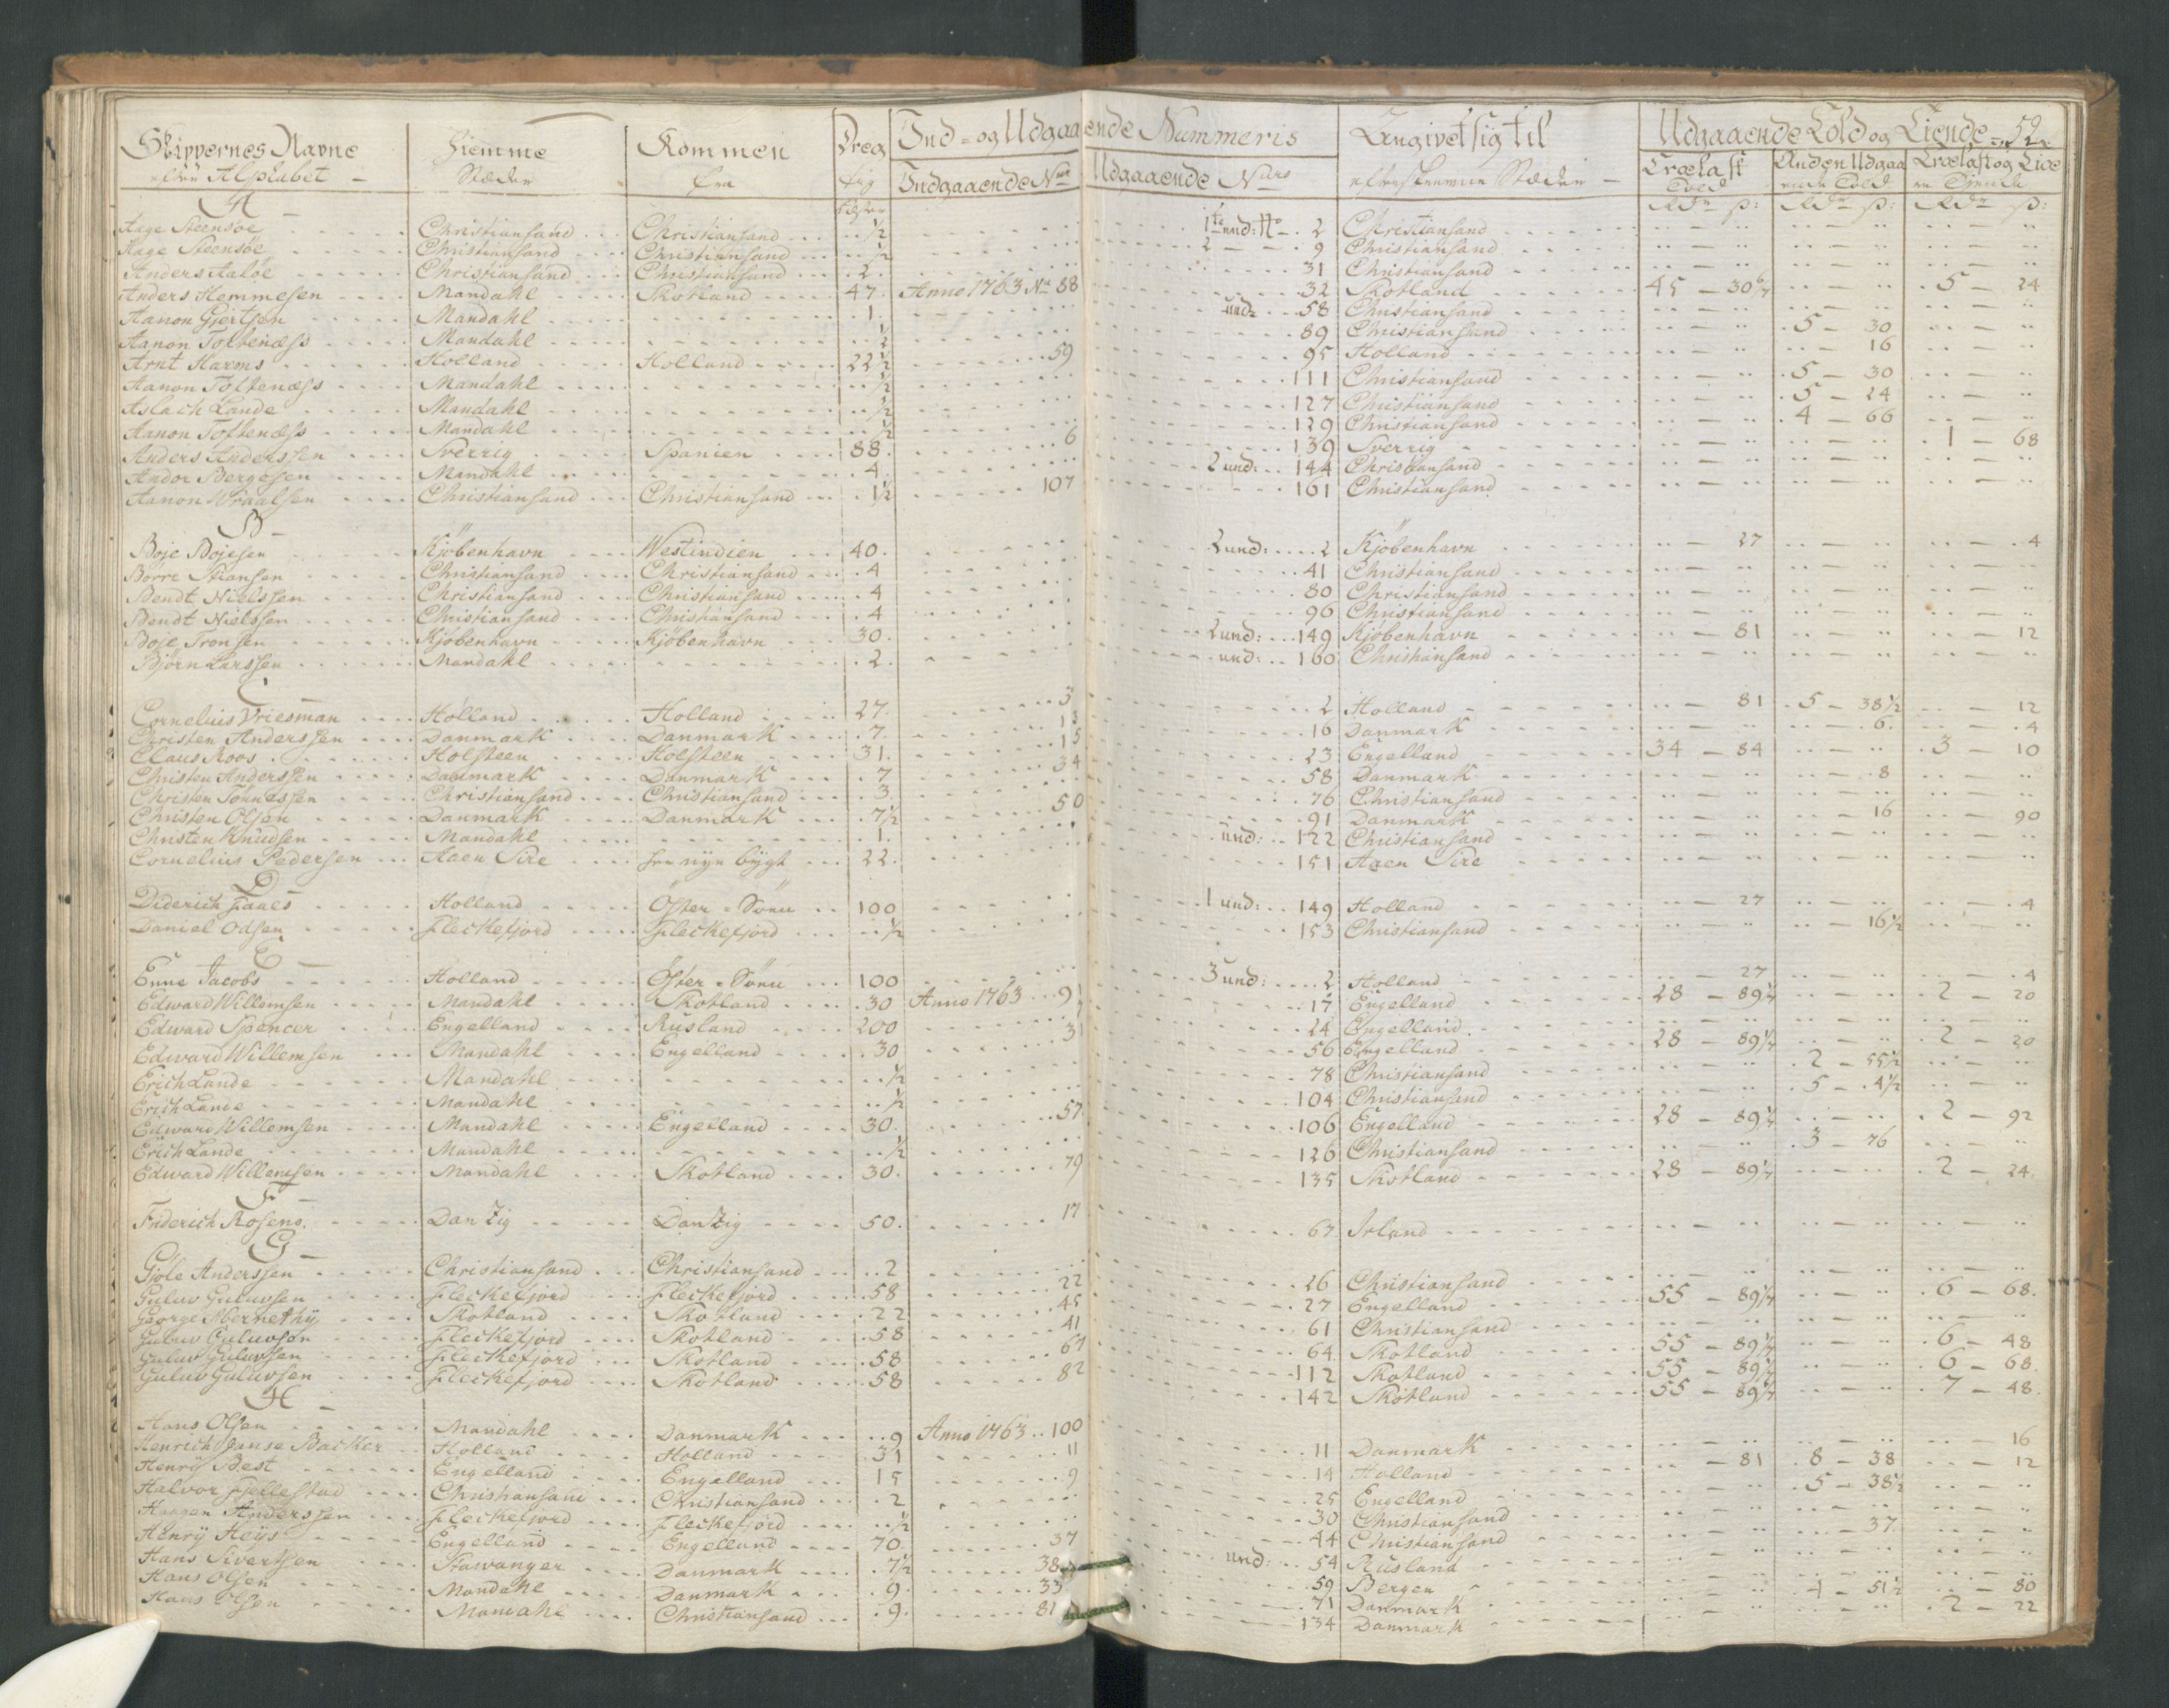 Skippernes Navne Hiemme Kommen Dreg Ind- og Udgaaende Nummeris Angivet sig til Udgaaende Told og Tiende 52
efter Alphabet Stæder fra tig Indgaaende Nrs Udgaaende Nrs Trælast Told Anden Udgaaende Told
Læster Rdr ß: Rdr ß: Rdr ß:
A
Aage Steensøe Christiansand Christiansand ½ 1te und: No 2 Christiansand
Aage Steensøe Christiansand Christiansand ½ 2 9 Christiansand
Anders Aaløe Christiansand Christiansand 2 31 Christiansand
Anders Hemmesen Mandahl Skotland 47 Anno 1763 No 88 32 Skotland 45 - 30 6/7 5 - 24
Aanon Giertsen Mandahl 1 und: 58 Christiansand
Aanon Toftenæss Mandahl ½ 89 Christiansand 5 - 30
Arnt Harms Holland Holland 22½ 59 95 Holland 16
Aanon Toftenæss Mandahl ½ 111 Christiansand 5 - 30
Aslach Lande Mandahl ½ 127 Christiansand 5 - 24
Aanon Toftenæss Mandahl ½ 129 Christiansand 4 - 66
Anders Anderssen Sverrig Spanien 88 6 139 Sverrig 1 - 68
Andor Bergesen Mandahl 4 2 und: 144 Christiansand
Aanon Wraalsen Christiansand Christiansand 1½ 107 161 Christiansand
B
Boje Bojesen Kjöbenhavn Westindien 40 2 und: 2 Kjöbenhavn 27 4
Börre Stiansen Christiansand Christiansand 4 41 Christiansand
Bendt Nielssen Christiansand Christiansand 4 80 Christiansand
Bendt Nielssen Christiansand Christiansand 4 96 Christiansand
Boje Tronsen Kjöbenhavn Kjöbenhavn 30 2 und: 149 Kjöbenhavn 81 12
Björn Larssen Mandahl 2 und: 160 Christiansand
C
Cornelius Vriesman Holland Holland 27 3 2 Holland 81 5 - 38½ 12
Christen Anderssen Danmark Danmark 7 13 16 Danmark 6 4
Claus Roos Holsteen Holsteen 31 15 23 Engelland 34 - 84 3 - 10
Christen Anderssen Danmark Danmark 7 34 58 Danmark 8
Christen Tönnessen Christiansand Christiansand 3 76 Christiansand
Christen Olsen Danmark Danmark 7½ 50 91 Danmark 16 90
Christen Knudsen Mandahl 1 und: 122 Christiansand
Cornelius Pedersen Aaen Sire her nye bygt 22 151 Aaen Sire
D
Diderich Faaes Holland Öster-Söen 100 1 und: 149 Holland 27 4
Daniel Odsen Fleckefjord Fleckefjord ½ 153 Christiansand 16½
E
Enne Jacobs Holland Öster-Söen 100 3 und: 2 Holland 27 4
Edward Willemsen Mandahl Skotland 30 Anno 1763 91 17 Engelland 28 - 89 1/7 2 - 20
Edward Spencer Engelland Rusland 200 24 Engelland
Edward Willemsen Mandahl Engelland 30 31 56 Engelland 28 - 89 1/7 2 - 20
Erich Lande Mandahl ½ 78 Christiansand 2 - 55½
Erich Lande Mandahl ½ 104 Christiansand 5 - 4½
Edward Willemsen Mandahl Engelland 30 57 106 Engelland 28 - 89 1/7 2 - 92
Erich Lande Mandahl ½ 126 Christiansand 3 - 76
Edward Willemsen Mandahl Skotland 30 79 135 Skotland 28 - 89 1/7 2 - 24
F
Friderich Roseng Danzig Danzig 50 17 67 Irland
G
Giøle Anderssen Christiansand Christiansand 2 26 Christiansand
Guluv Guluvsen Fleckefjord Fleckefjord 58 22 27 Engelland 55 - 89 1/7 6 - 68
George Abernethÿ Skotland Skotland 22 45 61 Christiansand
Guluv Guluvsøn Fleckefjord Skotland 58 41 64 Skotland 55 - 89 1/7 6 - 48
Guluv Guluvsen Fleckefjord Skotland 58 67 112 Skotland 55 - 89 1/7 6 - 68
Guluv Guluvsen Fleckefjord Skotland 58 82 142 Skotland 55 - 89 1/7 7 - 48
H
Hans Olsen Mandahl Danmark 9 Anno 1763 100 11 Danmark 16
Henrich Janse Backer Holland Holland 31 11 14 Holland 81 8 - 38 12
Henrÿ Best Engelland Engelland 15 9 25 Engelland 5 - 38½
Halvor Fjellestad Christiansand Christiansand 2 30 Christiansand
Haagen Anderssen Fleckefjord Fleckefjord ½ 44 Christiansand 37
Henrÿ Heÿs Engelland Engelland 70 37 und: 54 Rusland
Hans Sivertsen Stawanger Danmark 7½ 38 59 Bergen
Hans Olsen Mandahl Danmark 9 33 71 Danmark 4 - 51½ 80
Hans Olsen Mandahl Christiansand 9 81 134 Danmark 2 - 22